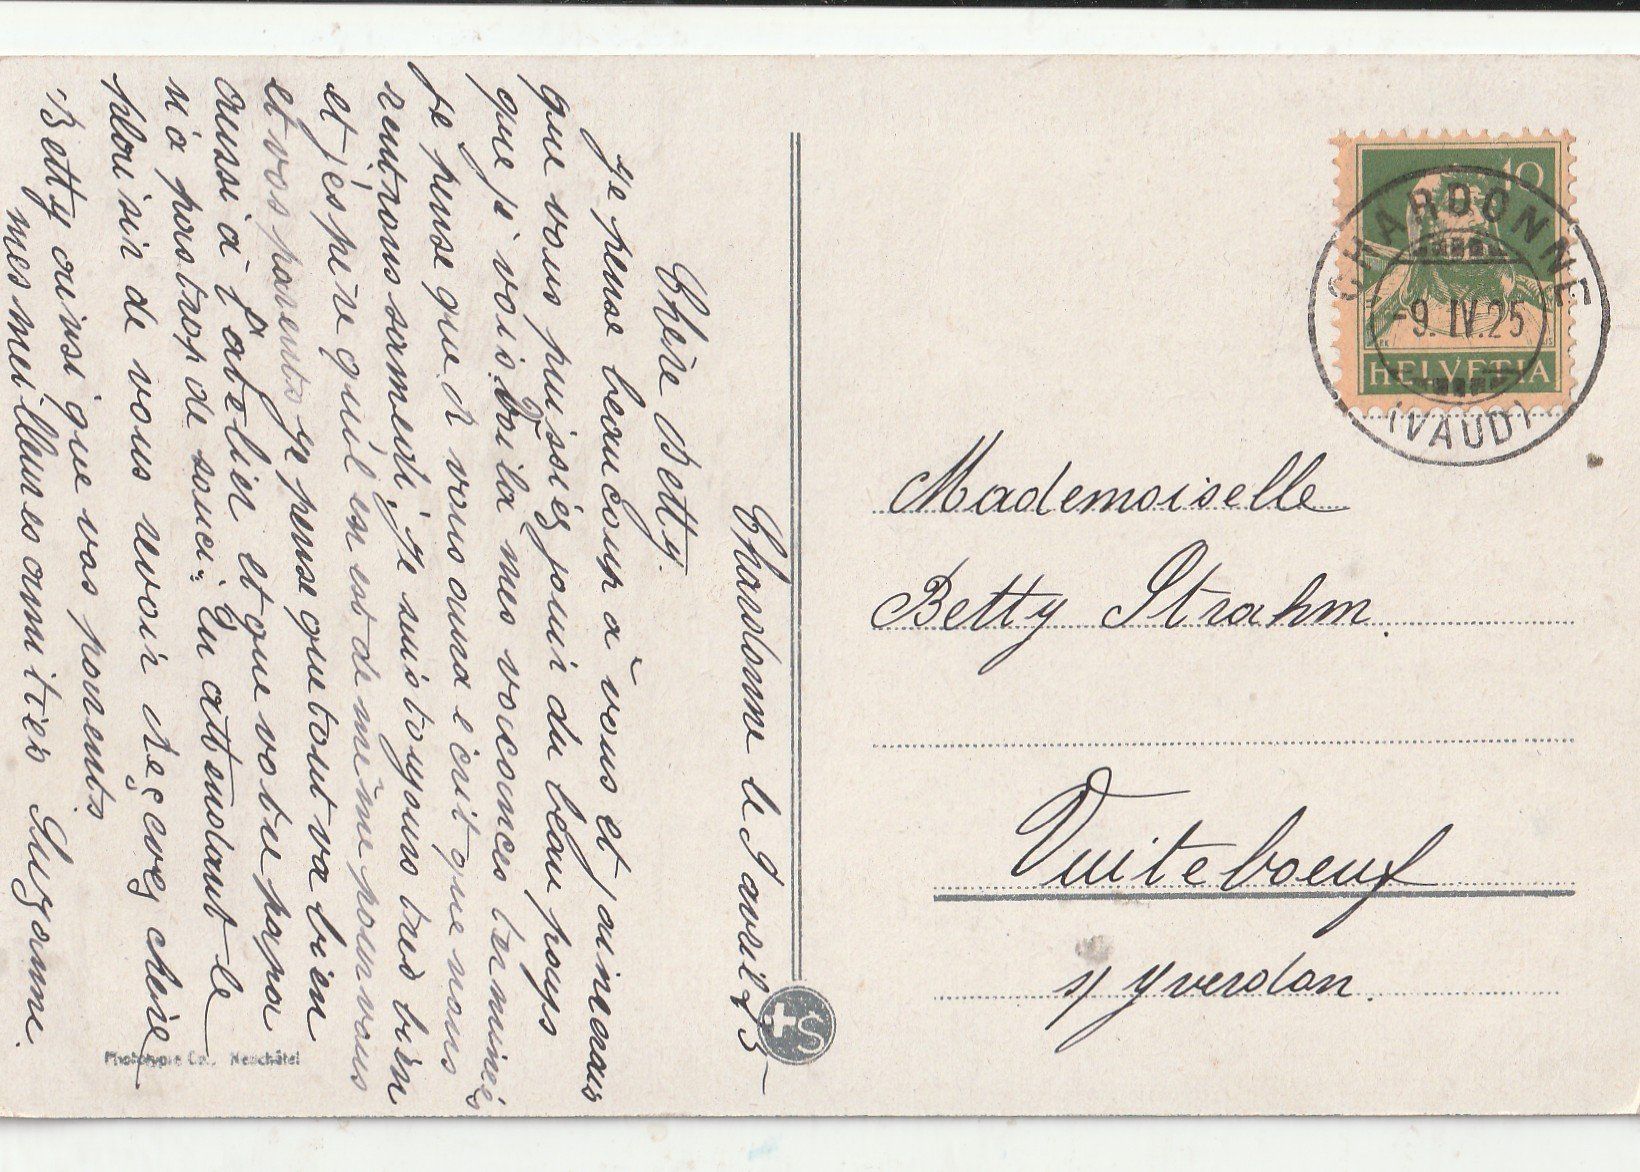 Chardonne le 9 avril 25
Chère Betty.
Je pense beaucoup à vous et j'aimerais
que vous puissiéz jouir du beau pays
que je vois. Voila mes vacances terminés
Je pense que R vous aura écrit que nous
rentrons samedi, je suis toujours très bien
et j'éspère quil en est de même pour vous
et vos parents je pense que tout va bien
aussi à l'atelier et que votre papa
n'a pas trop de souci. En attendant le
plaisir de vous revoir Reçevez chère
Betty ainsi que vos parents
mes meilleures amitiés Suzanne.
Phototypie Co., Neuchâtel
S
10
HELVETIA
CHARDONNE
-9. IV. 25
(VAUD)
Mademoiselle
Betty Strahm.
Vuiteboeuf
s/ Yverdon.